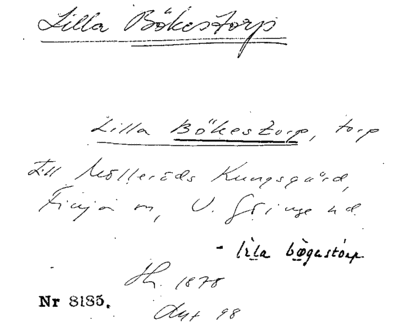 Lilla Bökestorp
Lilla Bökestorp, torp
till Mölleröds Kungsgård,
Finja sn, V. Göinge hd.
- lila bögastorp
1878
Nr 8185.